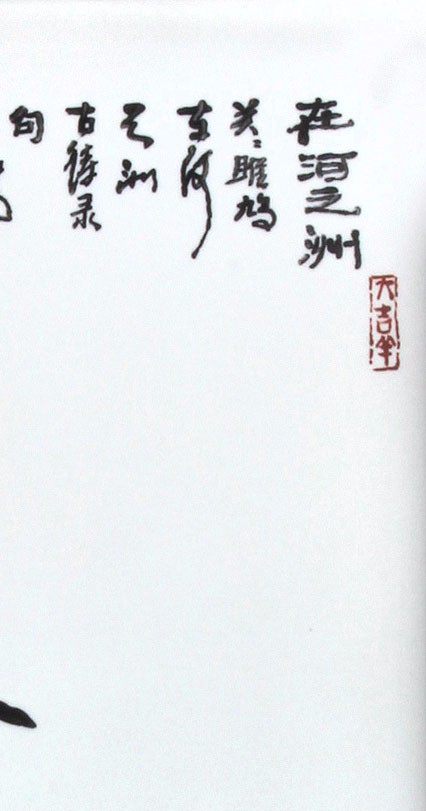 在河之洲
关〻雎鸠
在河
之洲
古诗录
句
大吉羊